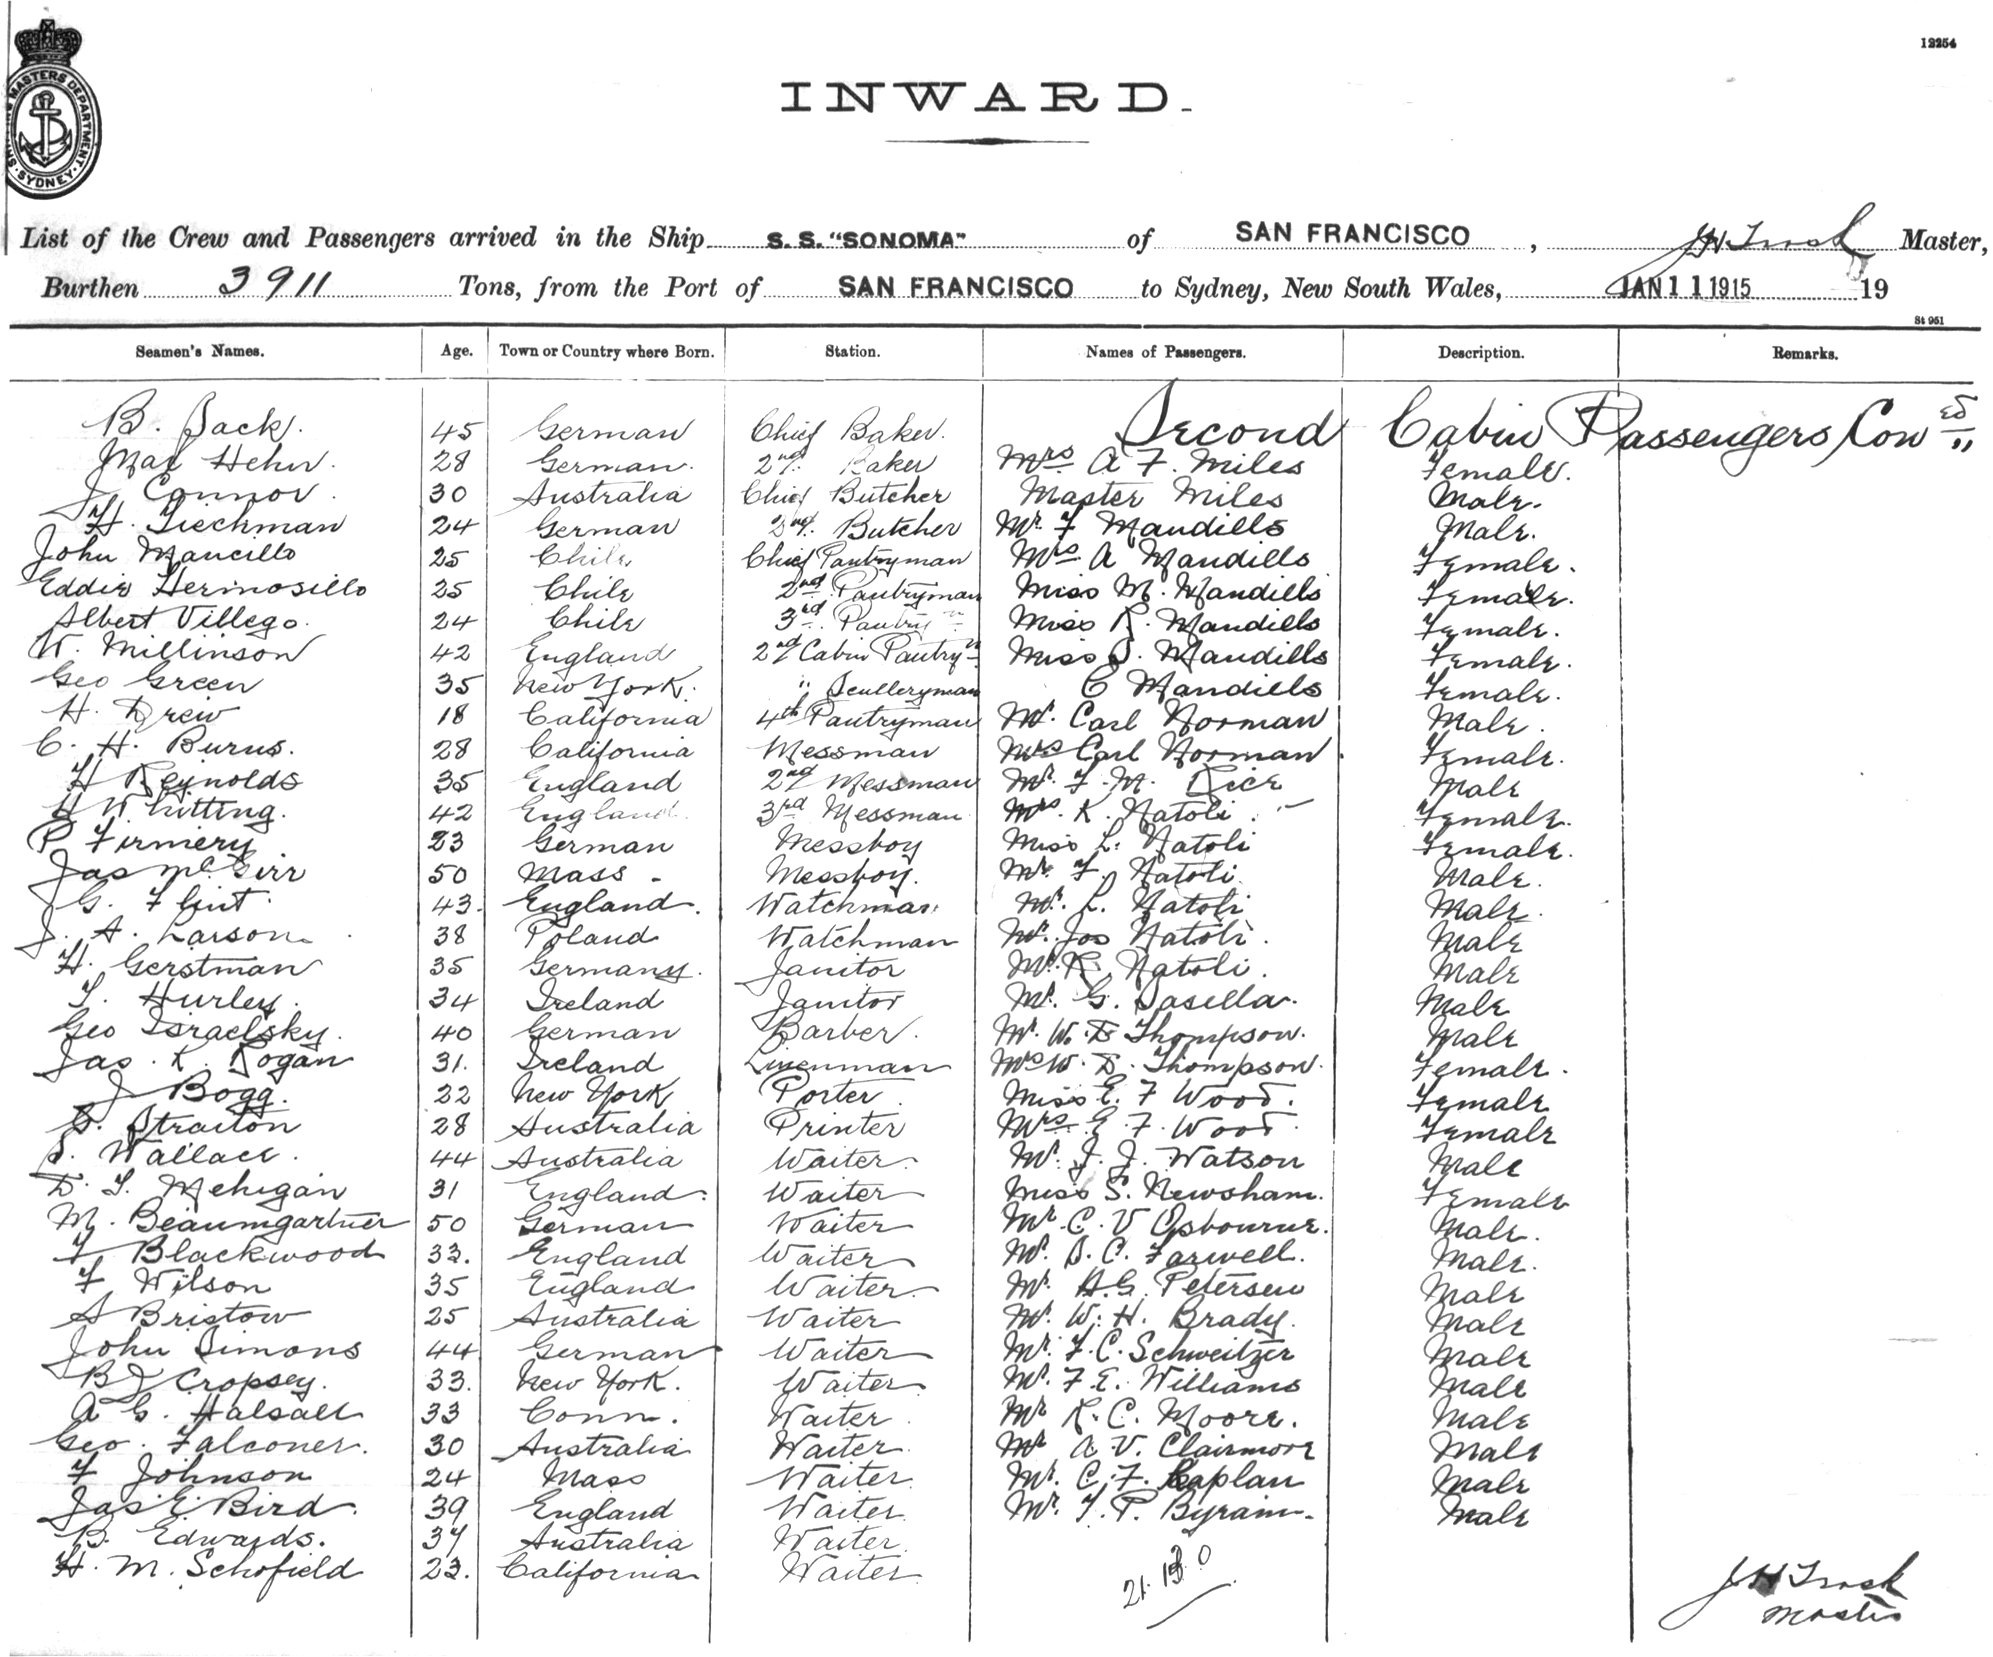 12254
SHIPPING MASTERS DEPARTMENT. SYDNEY.
INWARD.
List of the Crew and Passengers arrived in the Ship S. S. "SONOMA" of SAN FRANCISCO, J H Trask Master,
Burthen 3911 Tons, from the Port of SAN FRANCISCO to Sydney, New South Wales, JAN 11 1915 19
St 951
Seamen's Names. Age. Town or Country where Born. Station. Names of Passengers. Description. Remarks.
B. Back. 45 German Chief Baker. Second Cabin Passengers Con ed
Max Hehn. 28 German. 2nd. Baker Mrs A F. Miles Female. "
J. Connor. 30 Australia Chief Butcher Master Miles Male.
H. Tiechman 24 German 2nd. Butcher Mr. F Mandills Male.
John Mancillo 25 Chile Chief Pantryman Mrs. A Mandills Female.
Eddie Hermosillo 25 Chile 2nd Pantryman Miss M. Mandills Female.
Albert Villego. 24 Chile 3rd. Pantryn Miss R. Mandills Female.
W. Millinson 42 England 2nd Cabin Pantryn Miss S. Mandills Female.
Geo Green 35 New York. " Sculleryman C Mandiels Female.
H. Drew 18 California 4th Pantryman Mr. Carl Norman Male.
C. H. Burns. 28 California Messman Mrs Carl Norman. Female.
H Reynolds 35 England 2nd Messman Mr. F. M. Rice Male
H Whitting. 42 England. 3rd Messman Mrs. K. Natoli. Female.
P Firmery 23 German Messboy Miss L. Natoli Female.
Jas McGirr 50 Mass - Messboy. Mr. F. Natoli. Male.
G. Flint. 43. England. Watchman Mr. L. Natoli Male.
J. A. Larson 38 Poland Watchman Mr. Jos Natoli. Male
H. Gerstman 35 Germany. Janitor Mr. R. Natoli. Male
T. Hurley. 34 Ireland Janitor Mr. G. Sasella. Male
Geo Israelsky. 40 German Barber. Mr. W. D Thompson. Male
Jas. K. Rogan 31. Ireland Linenman Mrs W. D. Thompson. Female.
J Bogg. 22 New York Porter Miss E. F Wood. Female
S. Straiton 28 Australia Printer Mrs. E. F. Wood. Female
S. Wallace. 44 Australia Waiter. Mr. J. J. Watson Male
D. T. Mehigan 31 England. Waiter Miss S. Newsham. Female
M. Beaumgartner 50 German Waiter Mr. C. V Osbourne. Male.
F Blackwood 33. England Waiter Mr. S. C. Farwell. Male.
F Wilson 35 England Waiter. Mr. H. G. Petersen Male
A Bristow 25 Australia Waiter Mr. W. H. Brady. Male
John Simons 44 German Waiter Mr. F. C. Schweitzer Male
B J Cropsey. 33. New York. Waiter. Mr. F. E. Williams Male
A G. Halsall 33 Conn. Waiter. Mr R. C. Moore. Male
Geo. Falconer. 30 Australia Waiter. Mr A. V. Clairmore Male
F Johnson 24 Mass Waiter. Mr. C. F. Kaplan Male
Jas. E. Bird. 39 England Waiter. Mr. T. P. Byram. Male
B. Edwards. 37 Australia Waiter.
H. M. Schofield 23. California Waiter.
J H Trask
Master